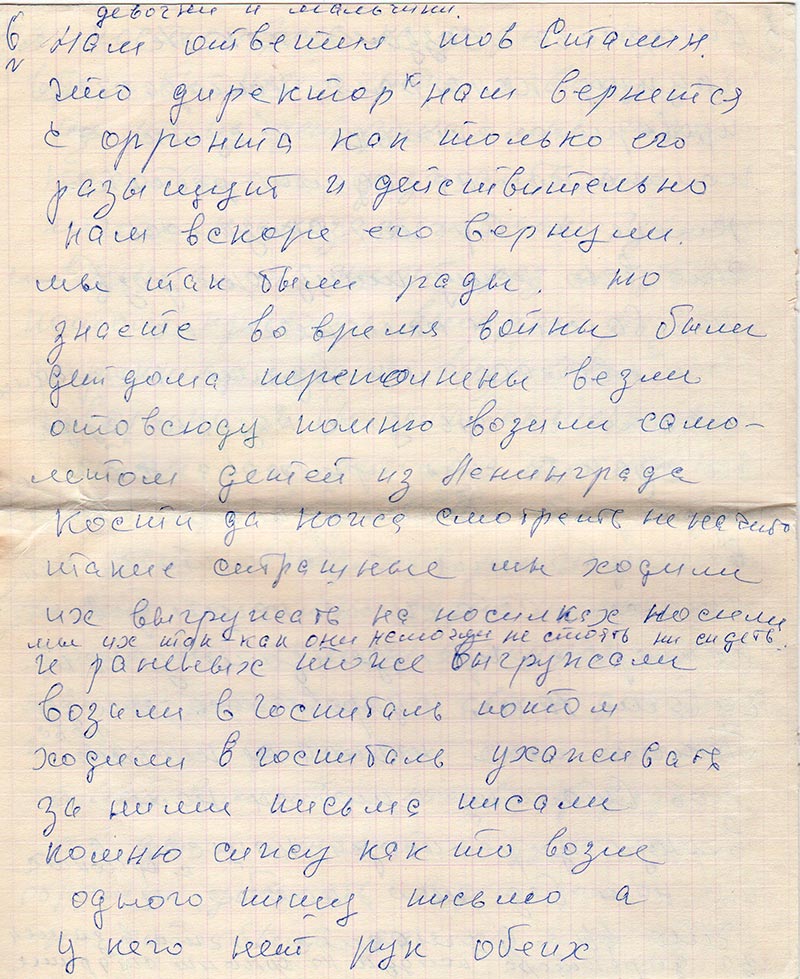 девочки и мальчики.
6 Нам ответил тов Сталин.
что директор к нам вернется
с фрронта как только его
разыщут и действительно
нам вскоре его вернули.
мы так были рады. но
знаете во время войны были
дет дома переполнены везли
отовсюду помню возили само-
летом детей из Ленинграда
кости да кожа смотреть не на что
такие страшные мы ходили
их выгружать на носилках носили
мы их так как они немогли не стоять ни сидеть.
и раненых тоже выгружали
возили в госпиталь потом
ходили в госпиталь ухаживать
за ними письма писали
помню сижу как то возле
одного пишу письмо а
у него нет рук обеих